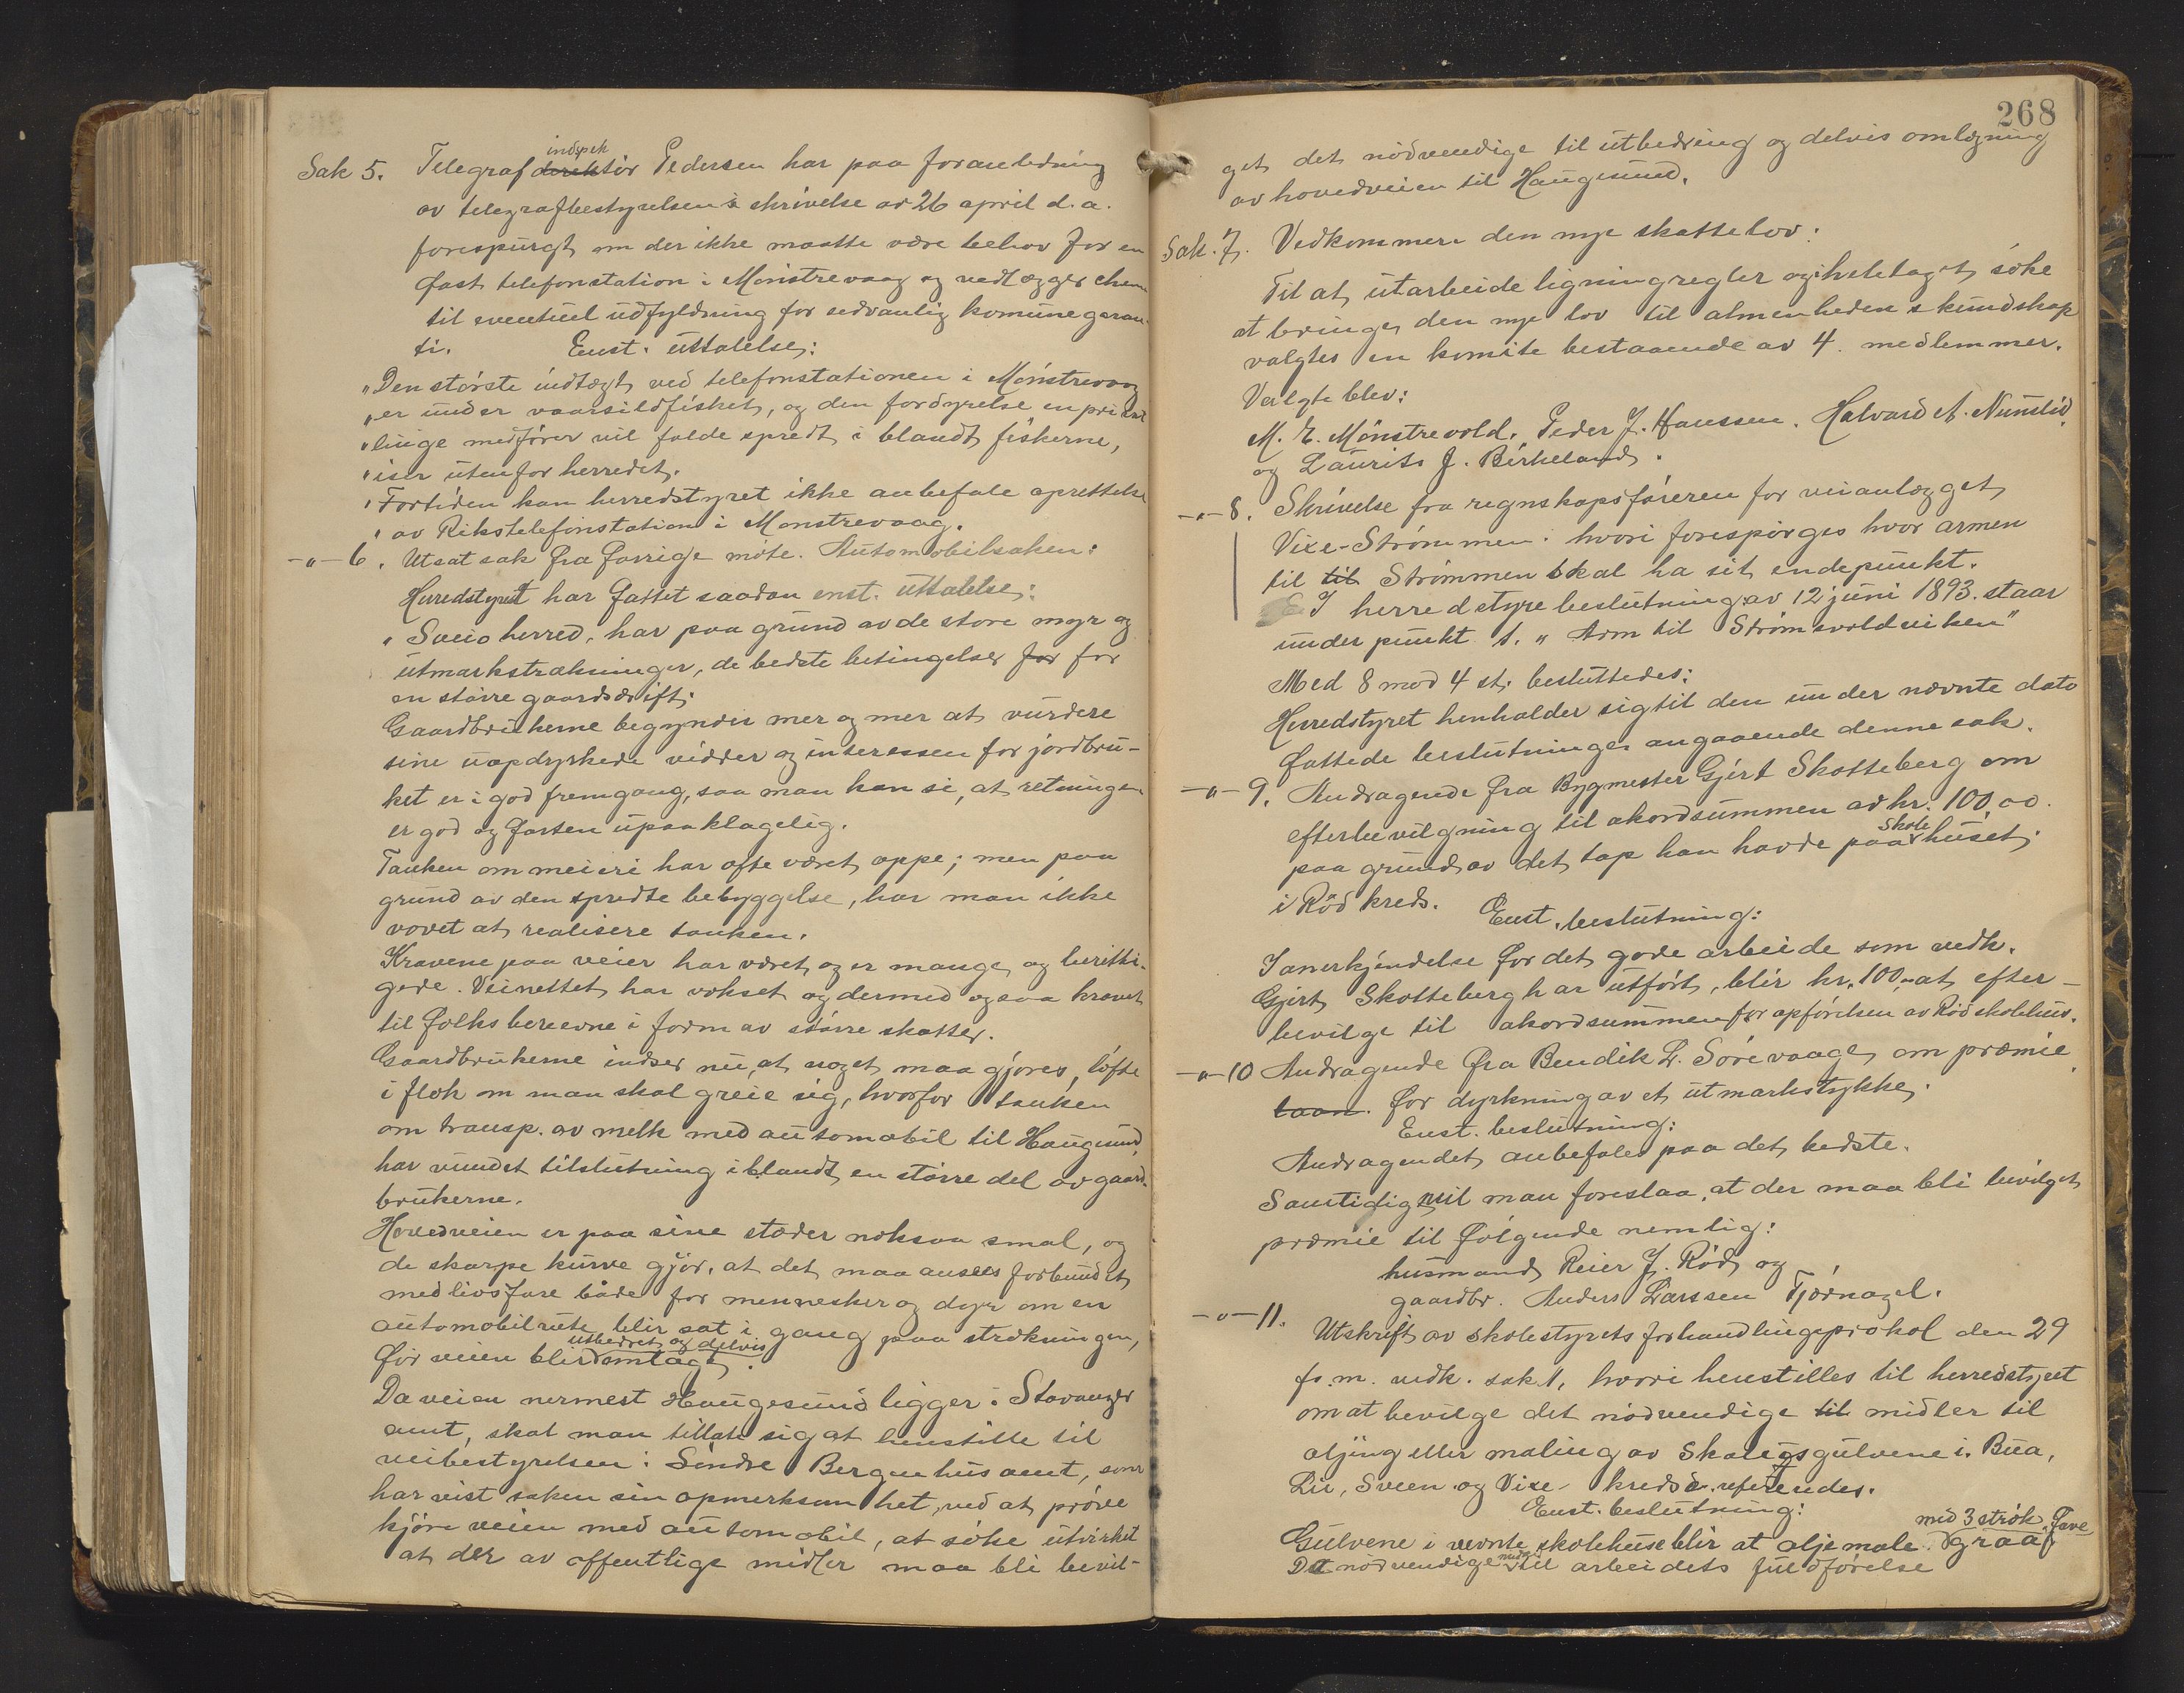 Sak 5. Telegraf direktör indspek Pedersen har paa foranledning
av telegrafbestyrelsens skrivelse av 26 april d.a.
forespurgt om der ikke maatte være behov for en
fast telefonstation i Mönstrevaag og vedlægger chema
til eventuel udfyldning for sedvanlig komunegaran-
ti. Enst. uttalelse:
"Den störste indtægt ved telefonstationen i Mönstrevaag
"er under vaarsildfisket, og den fordyrelse en privat
"linge medförer vil falde spredt i blandt fiskerne,
"iser utenfor herredet.
"Fortiden kan herredstyret ikke anbefale oprettelse
"av Rikstelefonstation i Mönstrevaag.
-"- 6. Utsat sak fra forrige möte. Automobilsaken:
Herredstyret har fattet saadan enst. uttalelse:
"Sveio herred, har paa grund av de store myr og
utmarkstrækninger, de bedste betingelser for for
en större gaardsdrift.
Gaardbrukerne begynder mer og mer at vurdere
sine uopdyrkede vidder og interessen for jordbru-
ket er i god fremgang, saa man kan si, at retningen
er god og farten upaaklagelig.
Tanken om meieri har ofte været oppe; men paa
grund av den spredte bebyggelse, har man ikke
vovet at realisere tanken.
Kravene paa veier har været og er mange og beretti-
gede. Veinettet har vokset og dermed ogsaa kravet
til folks bereevne i form av större skatter.
Gaardbrukerne indser nu, at noget maa gjöres, löfte
i flok om man skal greie sig, hvorfor tanken
om transp. av melk med automobil til Haugesund,
har vundet tilslutning iblandt en större del av gaard-
brukerne.
Hovedveien er paa sine stæder noksaa smal, og
de skarpe kurve gjör, at det maa ansees forbundet
med livsfare både for mennesker og dyr om en
automobilrute blir sat i gang paa strekningen,
för veien blir utbedret og delvis omlagt.
Da veien nermest Haugesund ligger i Stavanger
amt, skal man tillate sig at henstille til
veibestyrelsen i Söndre Bergenhus amt, som
har vist saken sin opmerksomhet, ved at pröve
kjöre veien med automobil, at söke utvirket
at der av offentlige midler maa bli bevil-
268
get det nödvendige til utbedring og delvis omlægning
av hovedveien til Haugesund.
Sak. 7. Vedkommen den nye skattelov:
Til at utarbeide ligningregler og iheletaget söke
at bringe den nye lov til almenhedens kundskap
valgtes en komite bestaaende av 4. medlemmer.
Valgte blev:
M. E. Mönstrevold, Peder J. Hanssen, Halvard A. Nunslid,
og Laurits J. Birkeland.
-"- 8. Skrivelse fra regnskapsföreren for veianlægget
Vixe-Strömmen. hvori forespörges hvor armen
til til Strömmen skal ha sit endepunkt.
I herredstyrebeslutning av 12 juni 1893. staar
under punkt 1. "Arm til Strömsvoldviken"
Med 8 mod 4 st. besluttedes:
Herredstyret henholder sig til den under nævnte dato
fattede beslutninger angaaende denne sak.
-"- 9. Andragende fra Bygmester Gjert Skotteberg om
efterbevilgning til akordsummen av kr. 100,00.
paa grund av det tap han havde paa skolehuset
i Röd kreds. Enst. beslutning:
I anerkjendelse for det gode arbeide som vedk.
Gjert Skotteberg har utfört, blir kr. 100,- at efter-
bevilge til akordsummen for opförelsen av Röd skolehus.
-"- 10 Andragende fra Bendik L. Sörevaage om præmie
laan. for dyrkning av et utmarkstykke.
Enst. beslutning:
Andragendet anbefales paa det bedste.
Samtidig vil man foreslaa, at der maa bli bevilget
præmie til fölgende nemlig:
husmand Reier J. Röd og
gaardbr. Anders Larssen Tjernagel.
-"- 11. Utskrift av skolestyrets forhandlingsprokol den 29
f.m. vedk. sak 1, hvori henstilles til herredstyret
om at bevilge det nödvendige til midler til
oljing eller maling av skolegulvene i Bua,
Lie, Sveen og Vixe- kredse refereredes.
Enst. beslutning:
Gulvene i nevnte skolehuse blir at oljemale med 3 strök graa farve
Det nödvendige midler til arbeidets fuldförelse